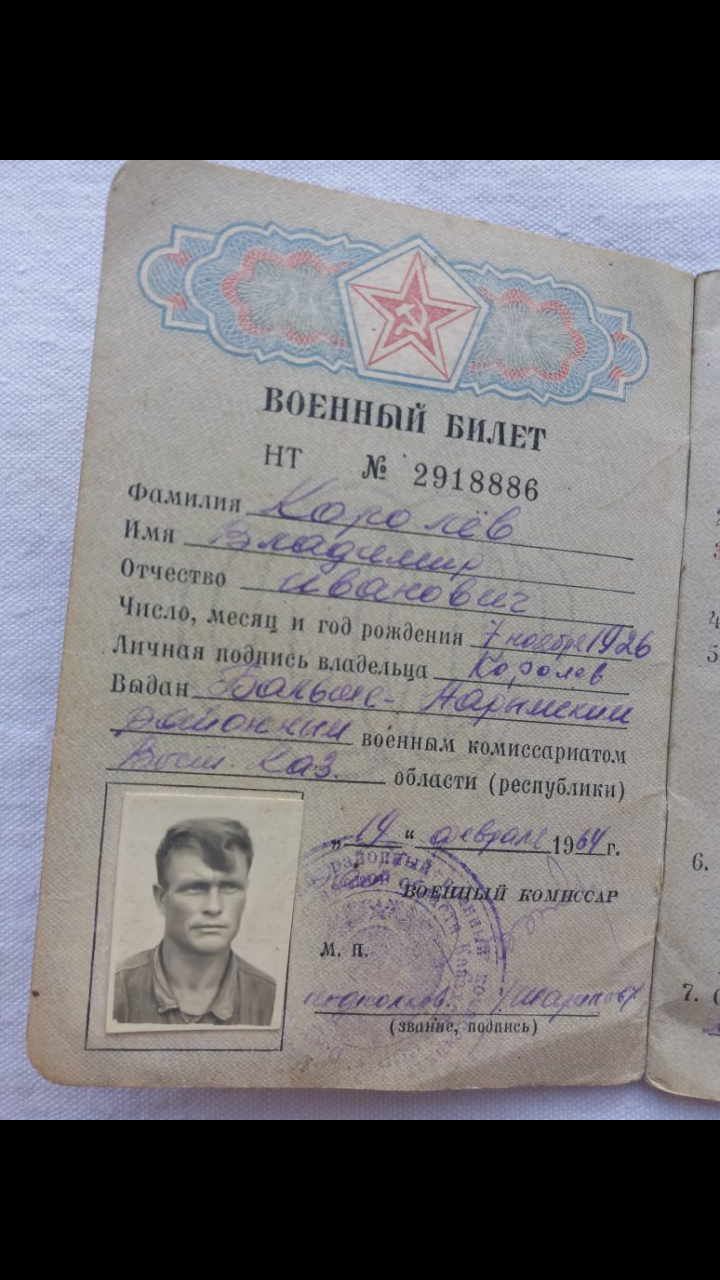 ВОЕННЫЙ БИЛЕТ
НТ № 2918886
Фамилия Королёв
Имя Владимир
Отчество Иванович
Число, месяц и год рождения 7 ноября 1926
Личная подпись владельца Королев
Выдан Больше-Нарымский
районным военным комиссариатом
Вост. Каз. области (республики)
„19“ февраля 1964 г.
ВОЕННЫЙ КОМИССАР
М. П.
подполков.
(звание, подпись)
5
6.
7.